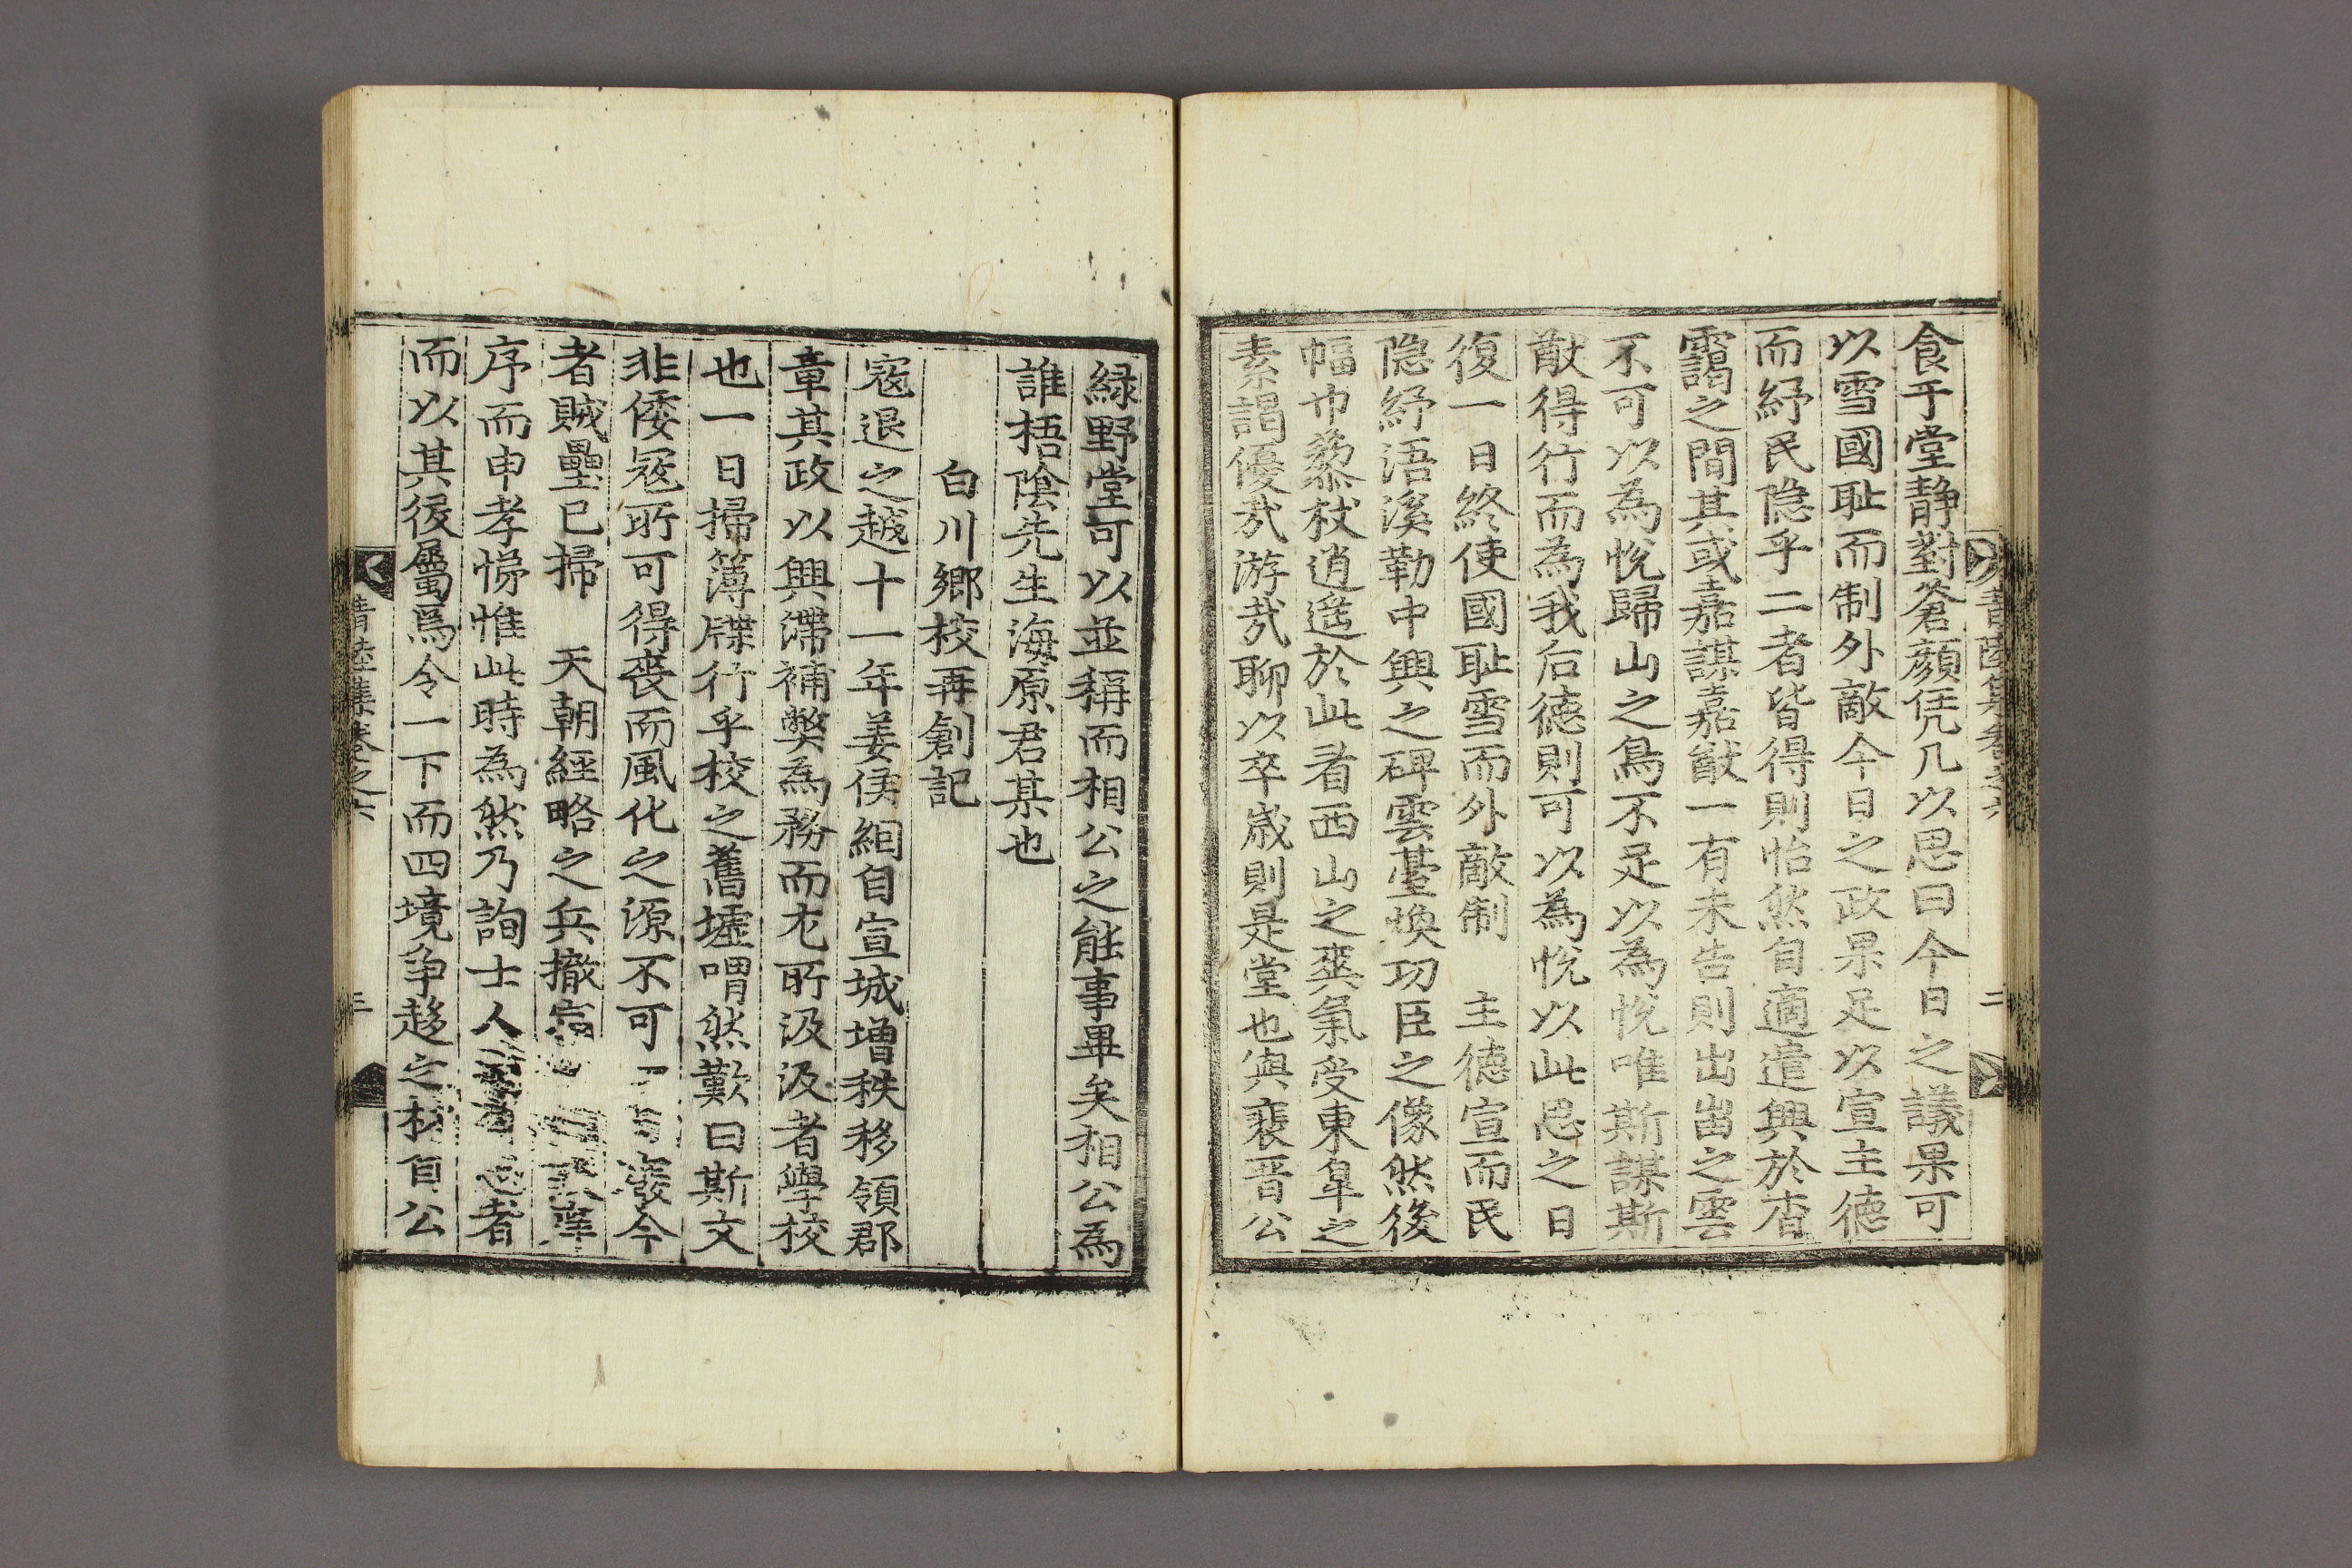 食乎堂静對蒼顔凭几以思曰今日之議果可
以雪國耻而制外敵今日之政果足以宣主德
而紓民隐乎二者皆得則怡然自適遣興於杳
靄之間其或嘉謀嘉猷一有未告則出岀之雲
不可以為悅歸山之鳥不足以為悅唯斯謀斯
猷得行而為我后德則可以為悅以此思之日
復一日終使國耻雪而外敵制 主德宣而民
隐紓浯溪勒中興之碑雲臺煥功臣之像然後
幅巾藜杖逍遥於此看西山之爽氣受東皐之
素謁優哉游哉聊以卒歲則是堂也與裴晋公
二
緑野堂可以並稱而相公之能事畢矣相公為
誰梧陰先生海原君某也
白川鄉校再創記
寇退之越十一年姜侯絪自宣城增秩移領郡
章其政以興滯補弊為務而尤所汲汲者學校
也一日掃簿牒行乎校之舊墟喟然歎曰斯文
非倭寇所可得喪而風化之源不可 廢今
者賊壘已掃 天朝經略之兵撤
序而申孝悌惟此時為然乃詢士人 者
而以其役屬焉令一下而四境争趍之材自公
集卷之六
三